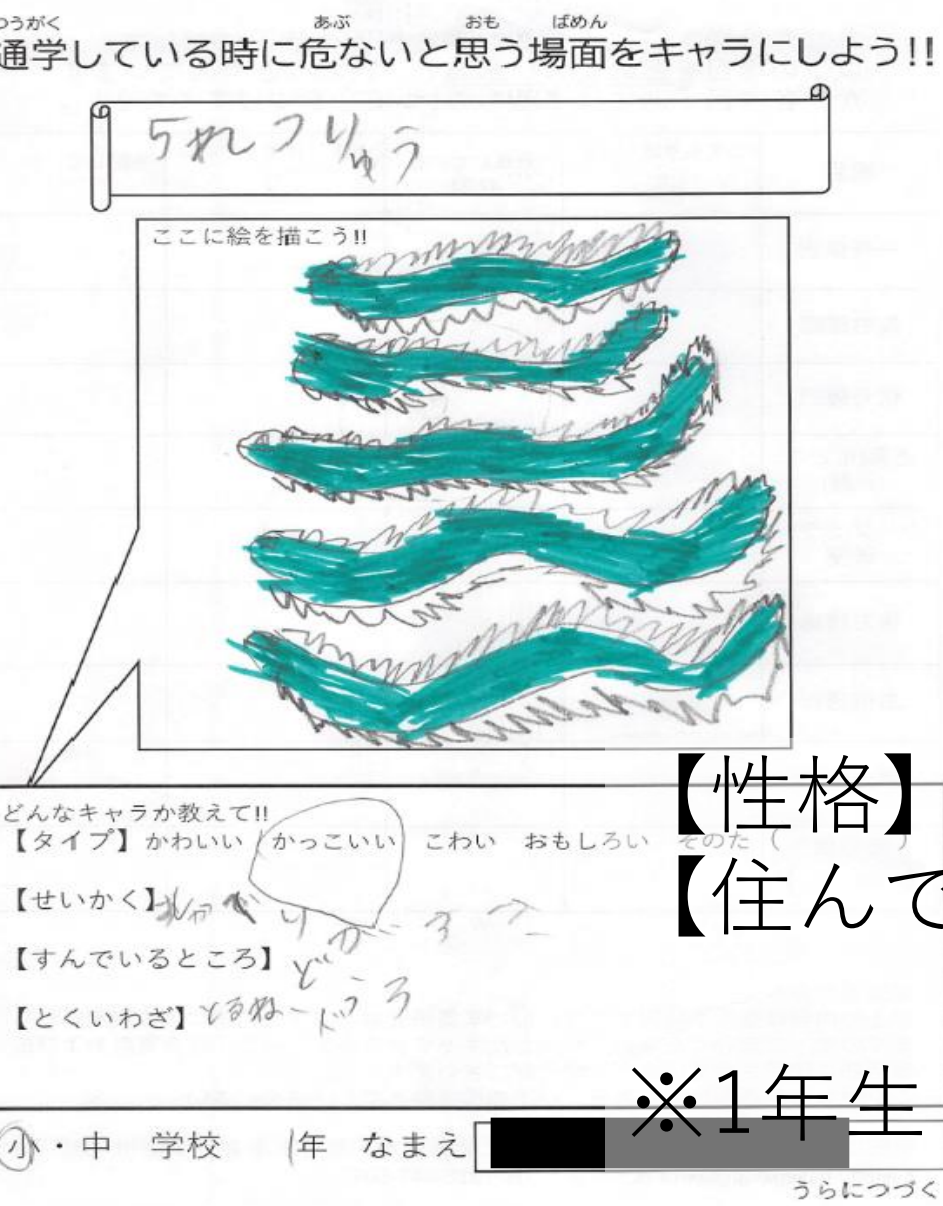 つうがく あぶ おも ばめん
通学している時に危ないと思う場面をキャラにしよう!!
りゅう
ここに絵を描こう!!
どんなキャラか教えて!!
【タイプ】かわいい かっこいい こわい おもしろい そのた( )
【せいかく】
【すんでいるところ】どうろ
【とくいわざ】とるねーど
【性格】
【住んで
※1年生
小・中 学校 1年 なまえ
うらにつづく